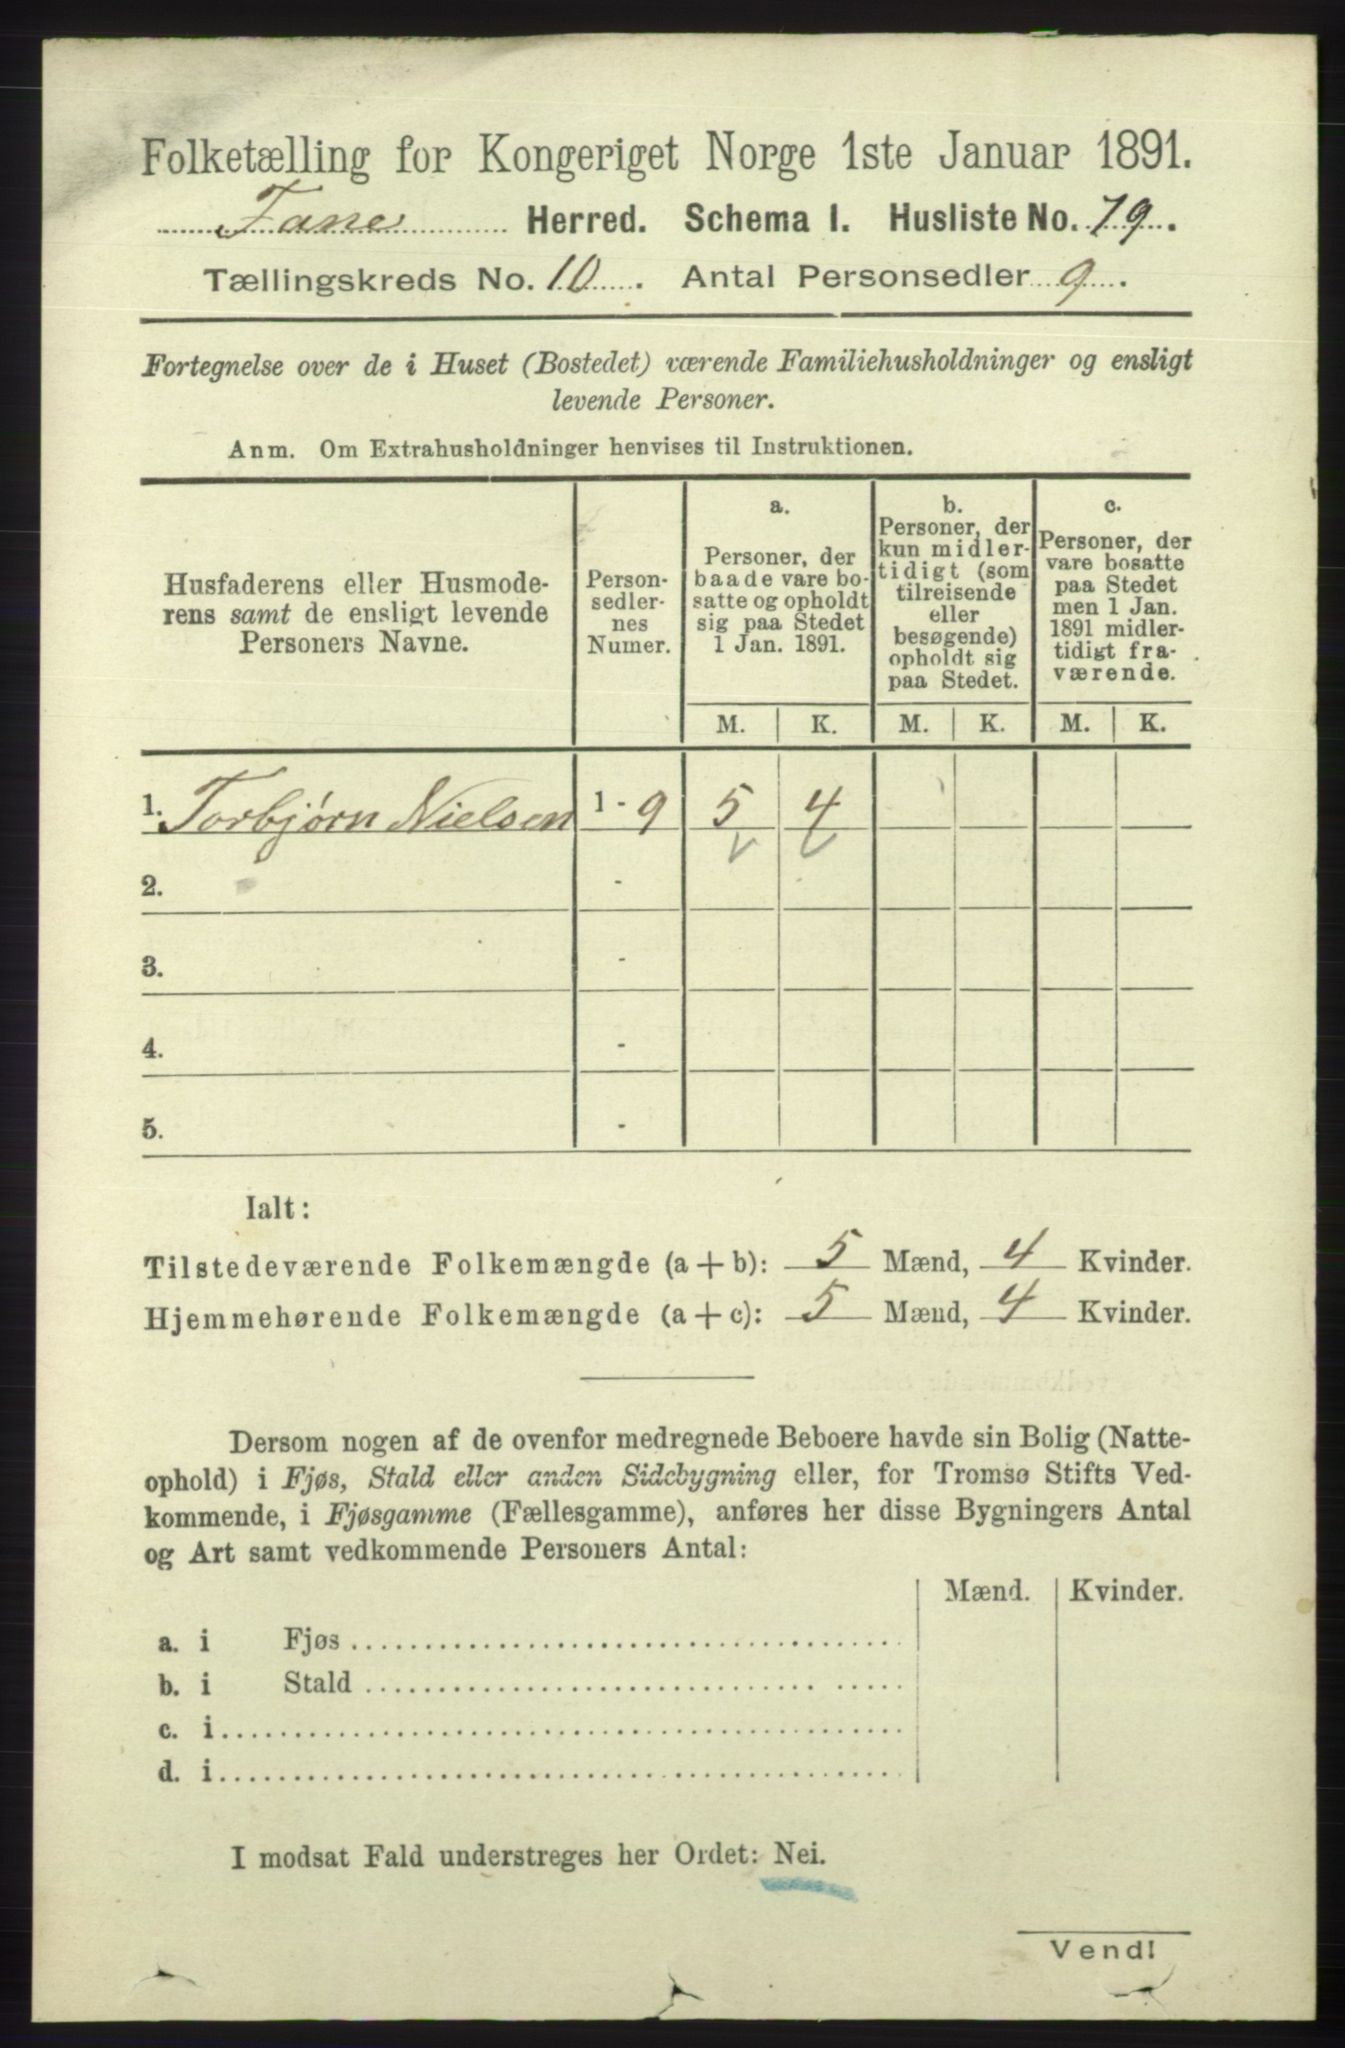 Folketælling for Kongeriget Norge 1ste Januar 1891.
Fane Herred. Schema I. Husliste No. 19.
Tællingskreds No. 10. Antal Personsedler 9.
Fortegnelse over de i Huset (Bostedet) værende Familiehusholdninger og ensligt
levende Personer.
Anm. Om Extrahusholdninger henvises til Instruktionen.
Husfaderens eller Husmode-
rens samt de ensligt levende
Personers Navne.
Person-
sedler-
nes
Numer.
a.
Personer, der
baade vare bo-
satte og opholdt
sig paa Stedet
1 Jan. 1891.
b.
Personer, der
kun midler-
tidigt (som
tilreisende
eller
besøgende)
opholdt sig
paa Stedet.
c.
Personer, der
vare bosatte
paa Stedet
men 1 Jan.
1891 midler-
tidigt fra-
værende.
M. K. M. K. M. K.
1. Torbjørn Nielsen 1 - 9 5 4
2. -
3. -
4. -
5. -
Ialt:
Tilstedeværende Folkemængde (a+b): 5 Mænd, 4 Kvinder.
Hjemmehørende Folkemængde (a+c): 5 Mænd, 4 Kvinder.
Dersom nogen af de ovenfor medregnede Beboere havde sin Bolig (Natte-
ophold) i Fjøs, Stald eller anden Sidebygning eller, for Tromsø Stifts Ved-
kommende, i Fjøsgamme (Fællesgamme), anføres her disse Bygningers Antal
og Art samt vedkommende Personers Antal:
Mænd. Kvinder.
a. i Fjøs
b. i Stald
c. i
d. i
I modsat Fald understreges her Ordet: Nei.
Vend!